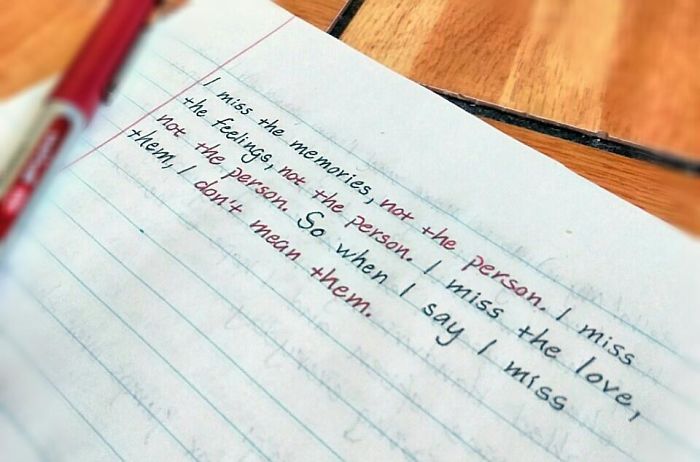 I miss the memories, not the person. I miss
the feelings, not the person. I miss the love,
not the person. So when I say I miss
them, I don't mean them.